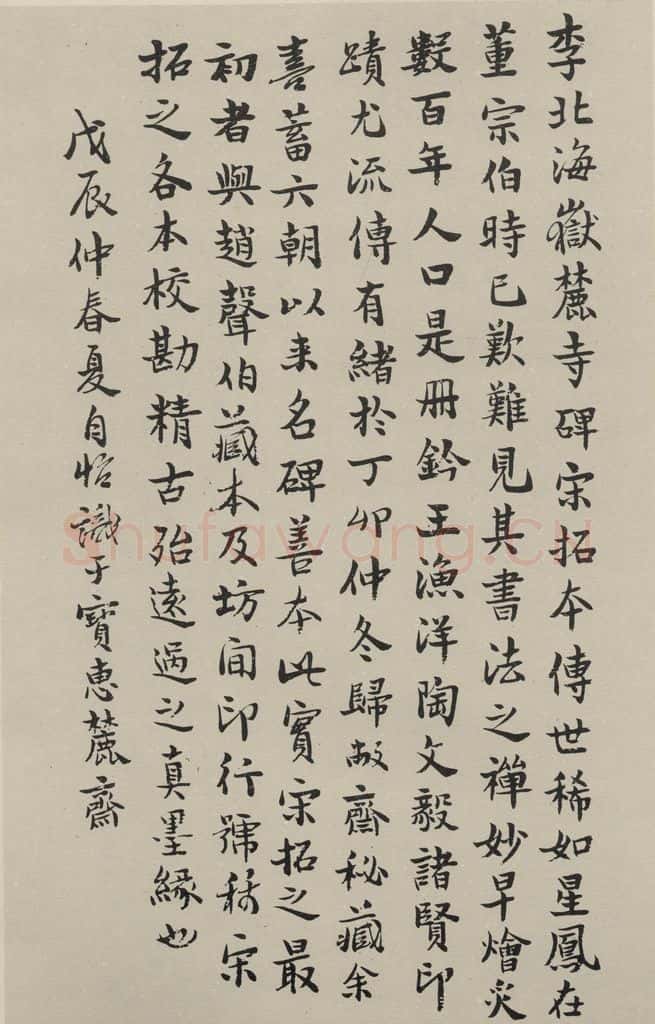 李北海嶽麓寺碑宋拓本傳世稀如星鳳在
董宗伯時已歎難見其書法之禪妙早燴炙
數百年人口是冊鈐王漁洋陶文毅諸賢印
蹟尤流傳有緒於丁卯仲冬歸敝齋秘藏余
喜蓄六朝以来名碑善本此實宋拓之最
初者與趙聲伯藏本及坊间印行號稱宋
拓之各本校勘精古殆遠過之真墨緣也
戊辰仲春夏自怡識于寶惠麓齋
Shufawang.CN